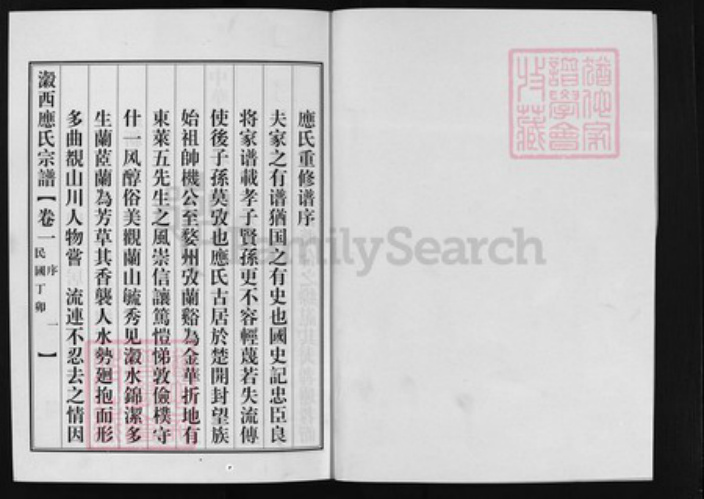 應氏重修谱序
夫家之有谱猶国之有史也國史記忠臣良
将家谱載孝子賢孫更不容輕蔑若失流傳
使後子孫莫攷也應氏古居於楚開封望族
始祖帥機公至婺州攷蘭谿為金華折地有
東萊五先生之風崇信讓篤愷悌敦儉樸守
什一风醇俗美觀蘭山毓秀见瀔水錦潔多
生蘭蓙蘭為芳草其香襲人水勢廻抱而形
多曲覩山川人物嘗 流連不忍去之情因
瀔西應氏宗譜【卷一 民國丁卯 序 一】
FamilySearch
猶他家
譜學會
收藏